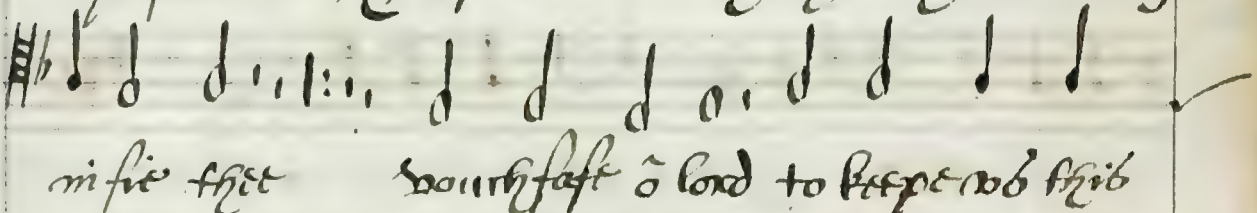 nifie thee vouchsafe ō lord to keepe vs this